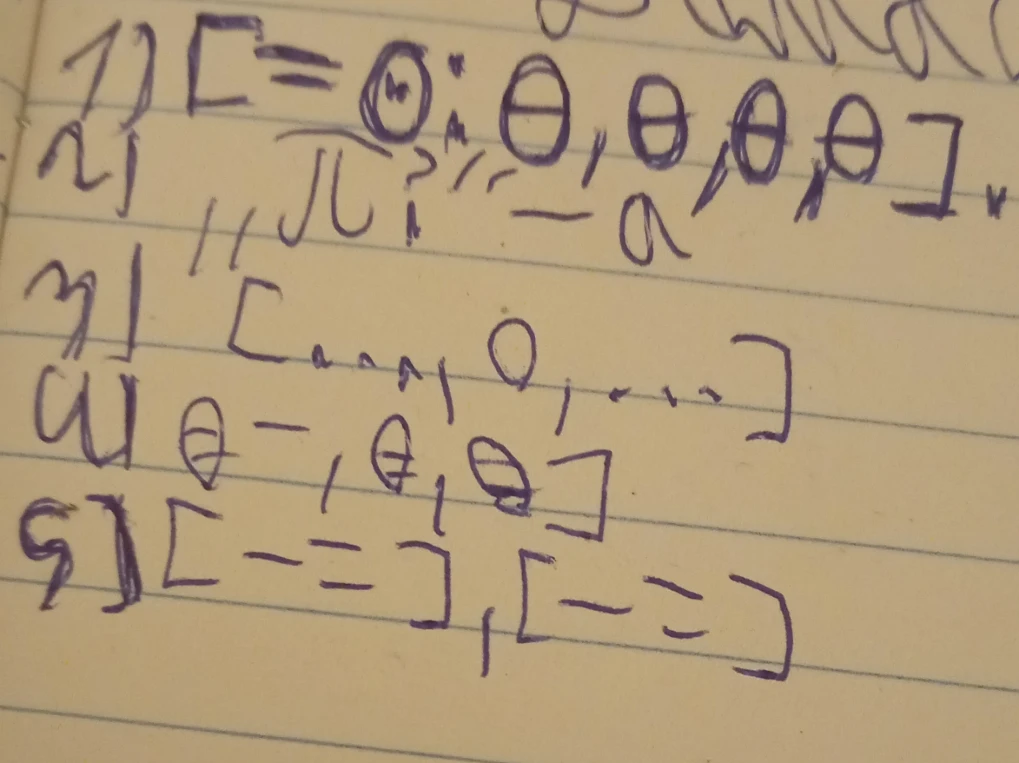 1) [= ⊙: ⊖, ⊖, ⊖, ⊖].
2) „П?“ – а
3) [..., О, ...]
4) ⊖ –, ⊜, ⊜]
5) [– =], [– =]